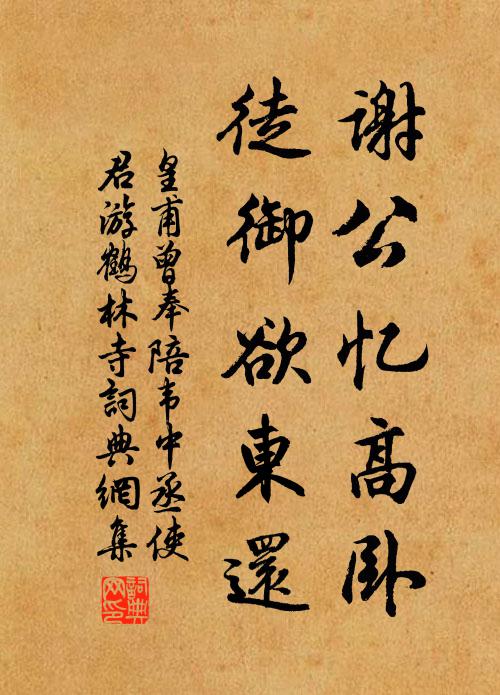 谢公忆高卧
徒御欲東還
皇甫曾奉陪韦中丞使
君游鶴林寺詞典網集
詞典
网印